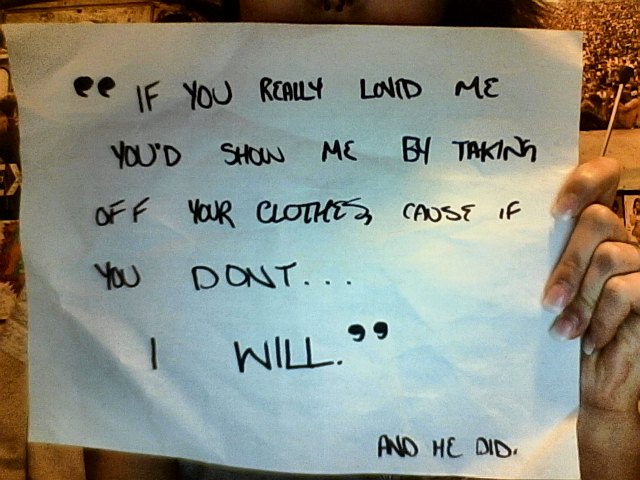 “IF YOU REALLY LOVED ME
YOU'D SHOW ME BY TAKING
OFF YOUR CLOTHES, CAUSE IF
YOU DONT...
I WILL.”
AND HE DID.